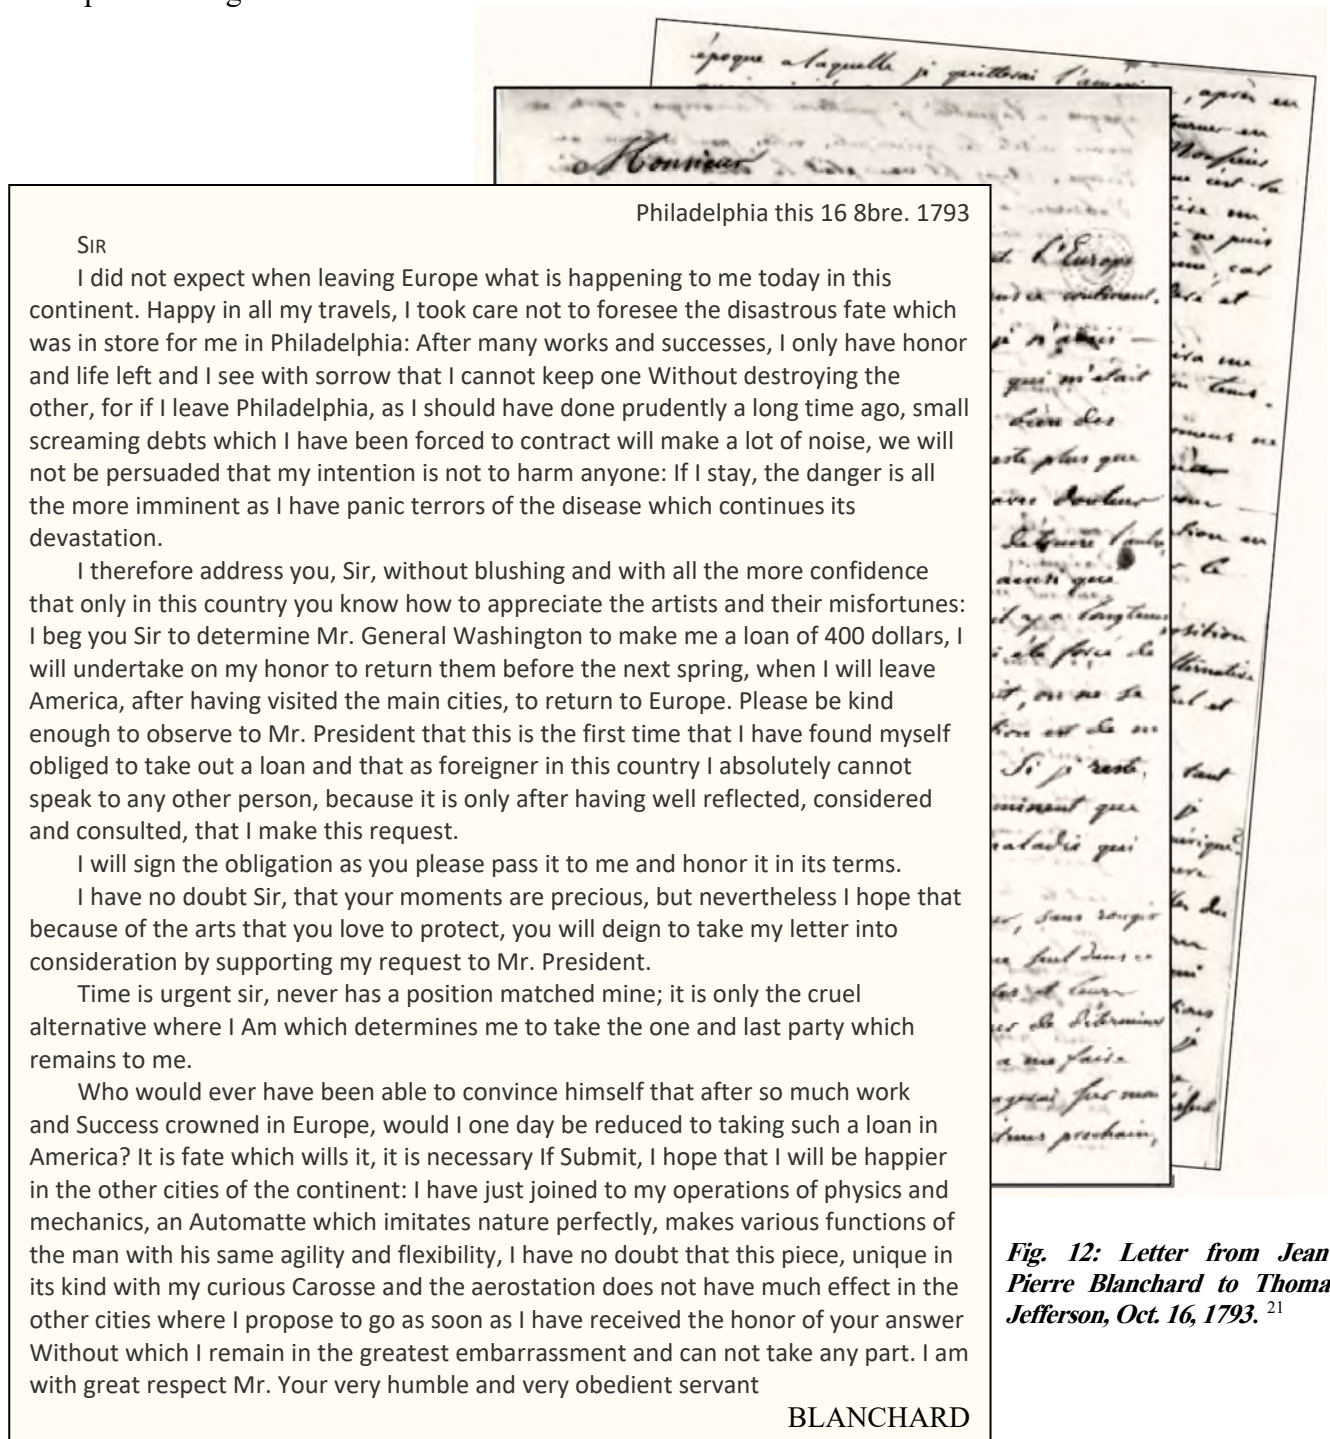 époque a laquelle je quitterai l'améri , après en
Monsieur
Monsieur
Philadelphia this 16 8bre. 1793
SIR
I did not expect when leaving Europe what is happening to me today in this
continent. Happy in all my travels, I took care not to foresee the disastrous fate which
was in store for me in Philadelphia: After many works and successes, I only have honor
and life left and I see with sorrow that I cannot keep one Without destroying the
other, for if I leave Philadelphia, as I should have done prudently a long time ago, small
screaming debts which I have been forced to contract will make a lot of noise, we will
not be persuaded that my intention is not to harm anyone: If I stay, the danger is all
the more imminent as I have panic terrors of the disease which continues its
devastation.
I therefore address you, Sir, without blushing and with all the more confidence
that only in this country you know how to appreciate the artists and their misfortunes:
I beg you Sir to determine Mr. General Washington to make me a loan of 400 dollars, I
will undertake on my honor to return them before the next spring, when I will leave
America, after having visited the main cities, to return to Europe. Please be kind
enough to observe to Mr. President that this is the first time that I have found myself
obliged to take out a loan and that as foreigner in this country I absolutely cannot
speak to any other person, because it is only after having well reflected, considered
and consulted, that I make this request.
I will sign the obligation as you please pass it to me and honor it in its terms.
I have no doubt Sir, that your moments are precious, but nevertheless I hope that
because of the arts that you love to protect, you will deign to take my letter into
consideration by supporting my request to Mr. President.
Time is urgent sir, never has a position matched mine; it is only the cruel
alternative where I Am which determines me to take the one and last party which
remains to me.
Who would ever have been able to convince himself that after so much work
and Success crowned in Europe, would I one day be reduced to taking such a loan in
America? It is fate which wills it, it is necessary If Submit, I hope that I will be happier
in the other cities of the continent: I have just joined to my operations of physics and
mechanics, an Automatte which imitates nature perfectly, makes various functions of
the man with his same agility and flexibility, I have no doubt that this piece, unique in
its kind with my curious Carosse and the aerostation does not have much effect in the
other cities where I propose to go as soon as I have received the honor of your answer
Without which I remain in the greatest embarrassment and can not take any part. I am
with great respect Mr. Your very humble and very obedient servant
BLANCHARD
l'Europe
continent.
je n'avais
qui m'était
bien des
plus que
avec douleur
détruire l'autre
ainsi que
il y a longtems
été forcé de
on ne se
est de ne
Si je reste,
que
maladie qui
sans rougir
seul dans ce
et leurs
de déterminer
a me faire
sur mon
prochain,
Fig. 12: Letter from Jean
Pierre Blanchard to Thoma
Jefferson, Oct. 16, 1793. 21